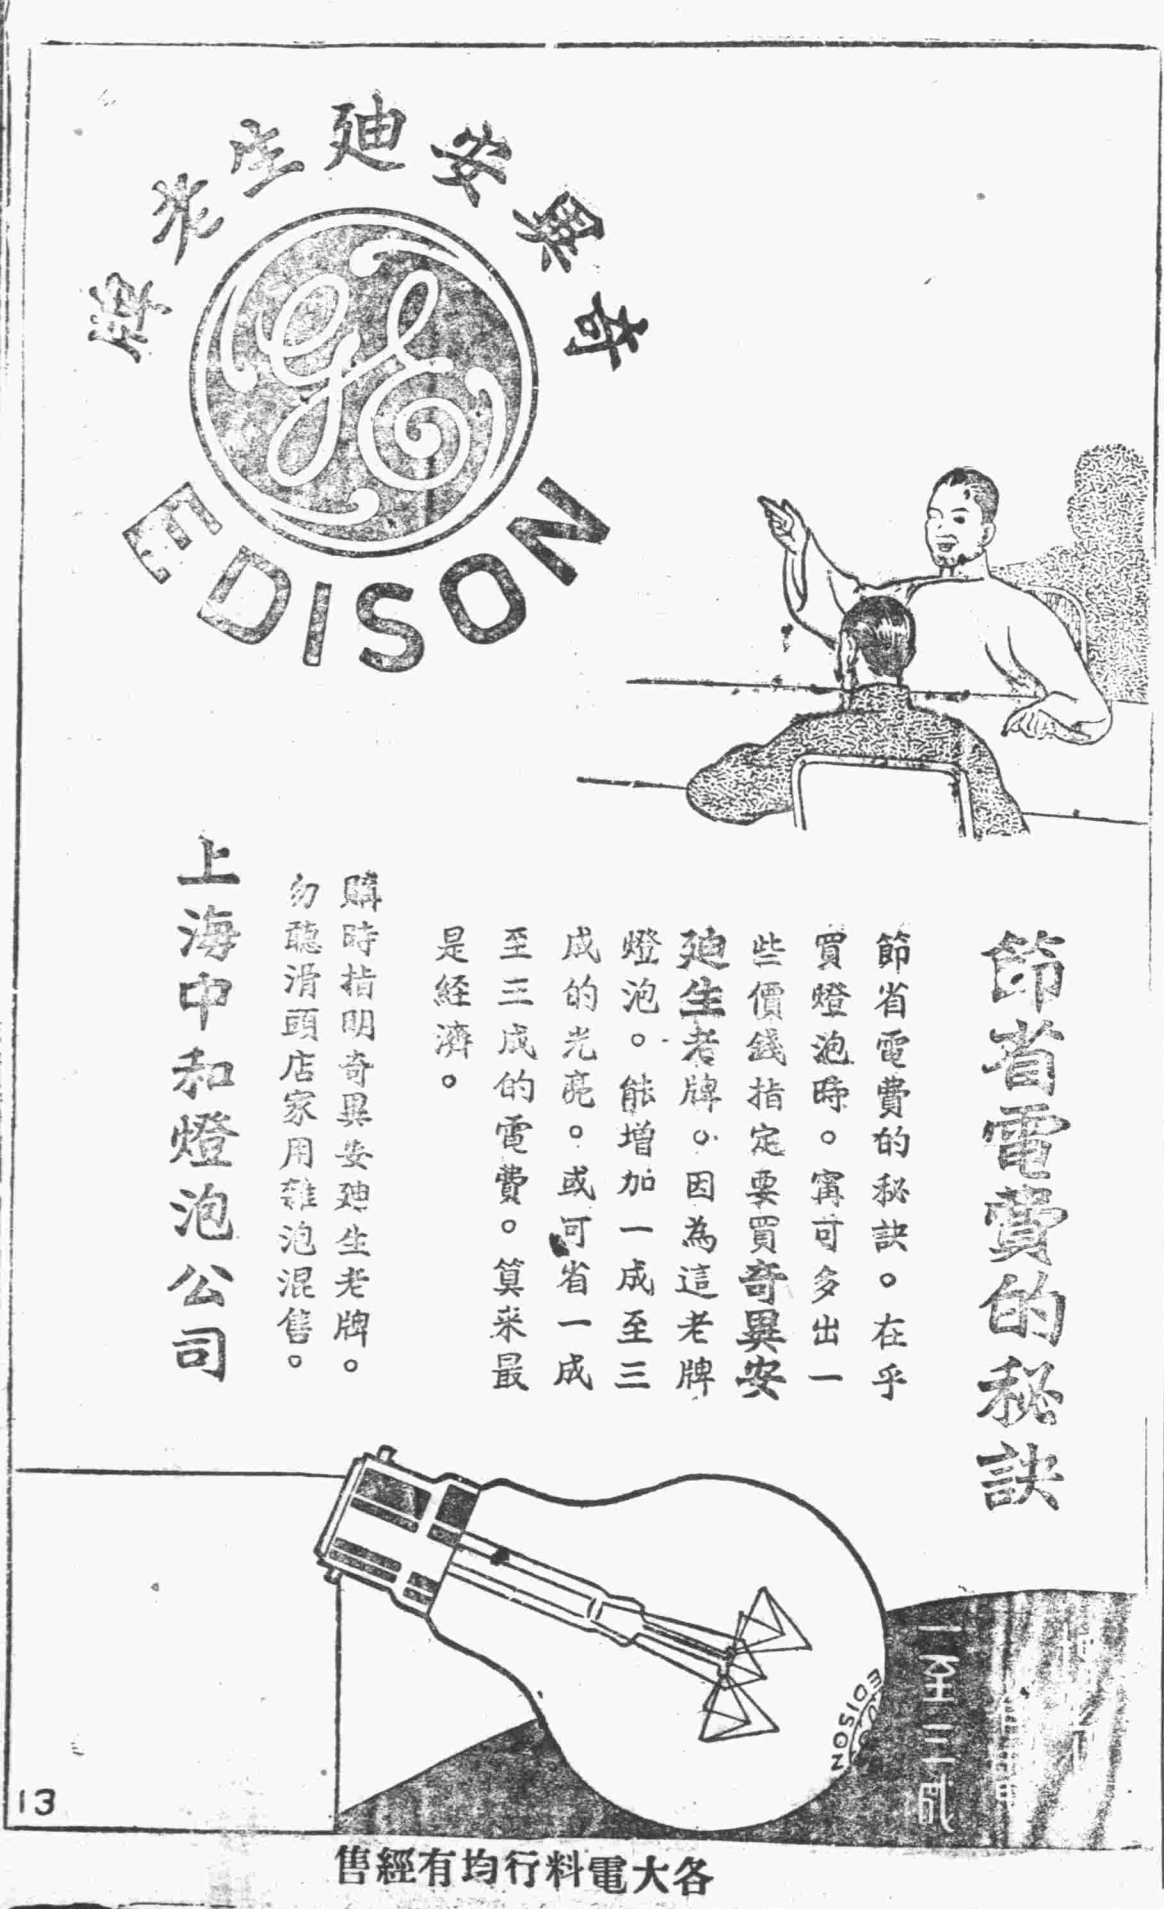 奇異安廸生老牌
GE
EDISON
節省電費的秘訣
節省電費的秘訣。在乎
買燈泡時。寗可多出一
些價錢指定要買奇異安
廸生老牌。因為這老牌
燈泡。能增加一成至三
成的光亮。或可省一成
至三成的電費。算來最
是経濟。
購時指明奇異安廸生老牌。
勿聽滑頭店家用雜泡混售。
上海中和燈泡公司
EDISON
一至三成
13
各大電料行均有經售